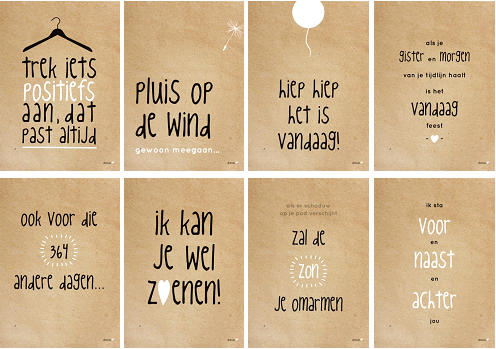 trek iets
positiefs
aan, dat
past altijd
pluis op
de wind
gewoon meegaan...
hiep hiep
het is
vandaag!
als je
gister en morgen
van je tijdlijn haalt
is het
vandaag
feest
ook voor die
364
andere dagen...
ik kan
je wel
zoenen!
als er schaduw
op je pad verschijnt
zal de
zon
je omarmen
ik sta
voor
en
naast
en
achter
jou